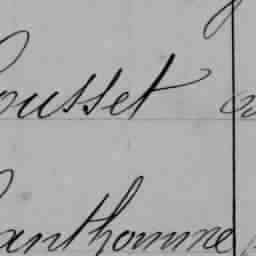 ousset
anthomme